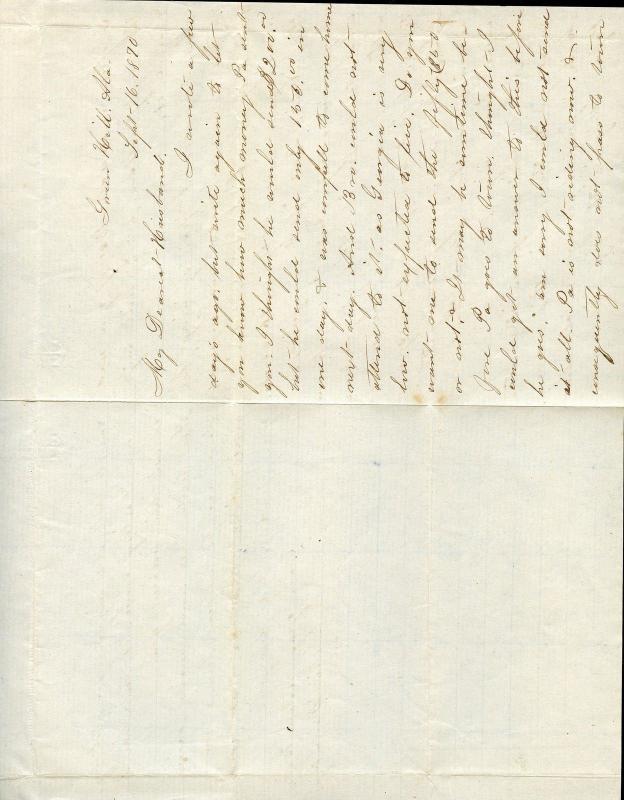 Green Hill. Ala.
Sept. 16. 1870
My Dearest Husband.
I wrote a few
days ago. but write again to let
you know how much money Pa sent
you. I thought he would send $200.00
but he could send only 150.00 in
one day, & was compelt to come home
next day. And Bro. could not
attend to it as Georgia is very
low. not expected to live. Do you
want me to send the fifty (50
or not? It may be sometime be-
fore Pa goes to town. thought I
could get an answer to this before
he goes. am sorry I could not send
it all. Pa is not riding now. &
consequently does not pass to town